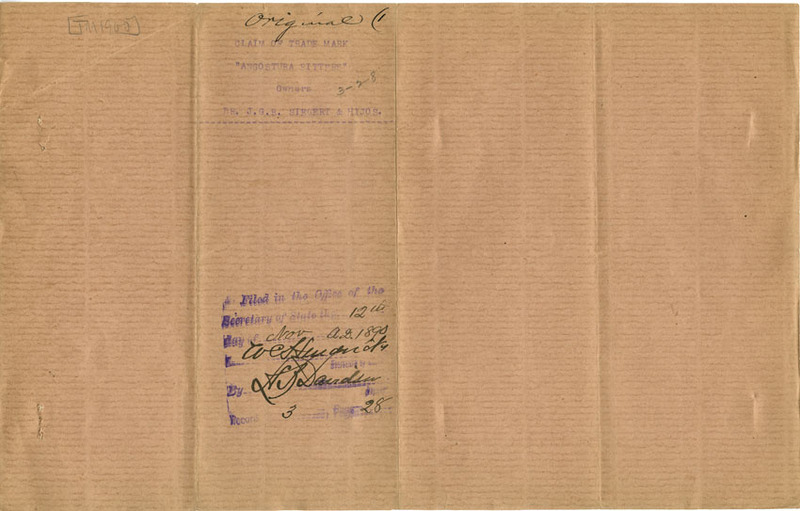 [TM1902]
Original (1
CLAIM OF TRADE MARK
"ANGOSTURA BITTERS"
Owners
3-28
DR. J.G.B. SIEGERT & HIJOS.
Filed in the Office of the
Secretary of State the 12th
day of Nov. A.D. 1890
W C Hendricks
Secretary of
By
Record 3 Page 28